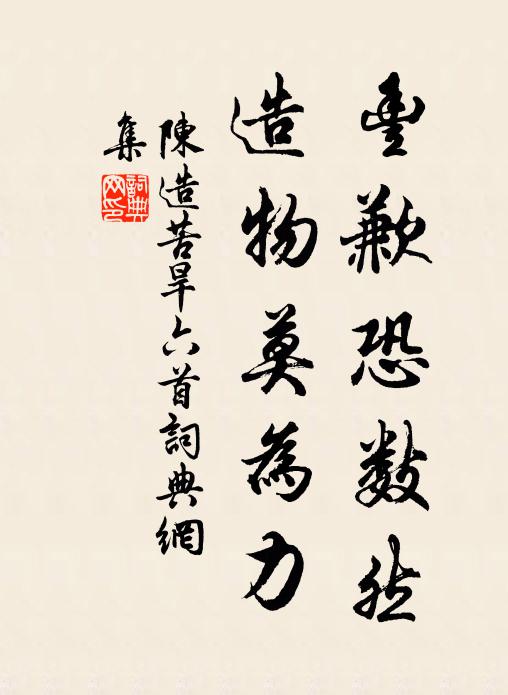 豐歉恐數然
造物莫為力
陳造苦旱六首詞典網
集
詞典
网印